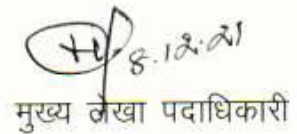 8.12.21
मुख्य लेखा पदाधिकारी